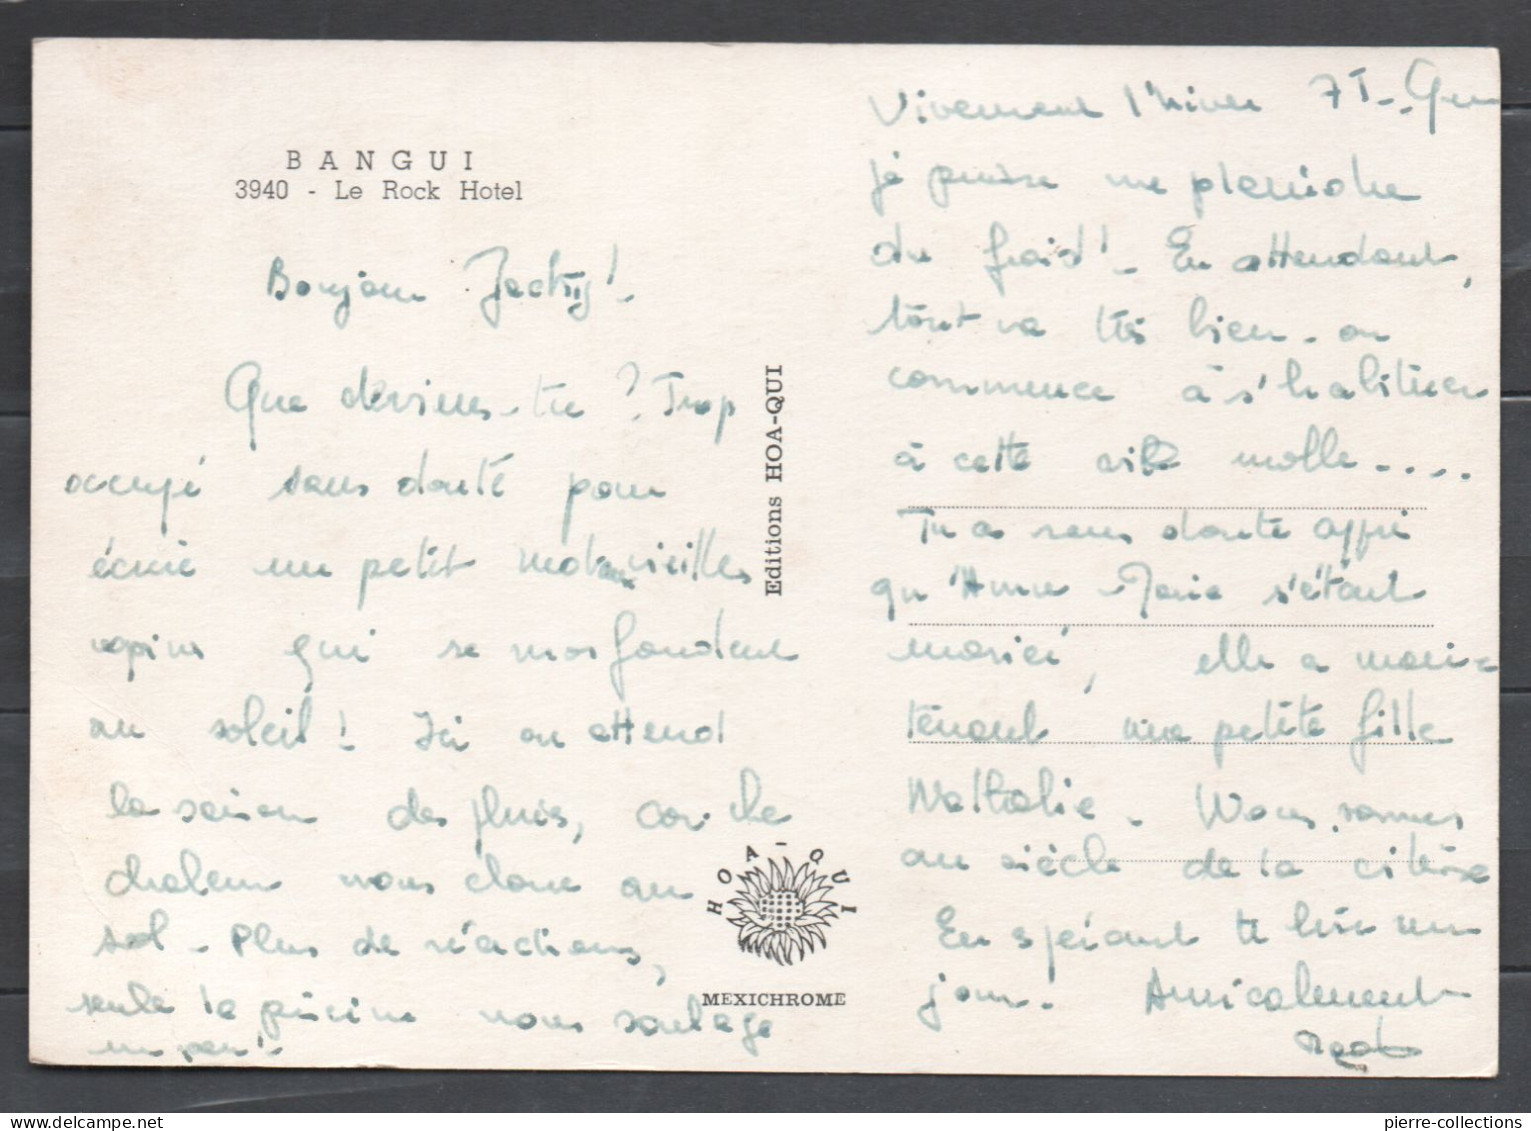 BANGUI
3940 - Le Rock Hotel
Bonjour Jacky! -
Que deviens-tu ? Trop
occupé sans doute pour
écrire un petit mot aux vieilles
qui se morfondent
au soleil! Ici on attend
la saison des pluies, car le
chaleur nous cloue au
sol - Plus de réactions,
seule la piscine nous soulage
un peu!
Vivement l'hiver 71 - Que
je puisse me
du froid! - En attendant,
tout va très bien - on
commence à s'habituer
à cette ville molle.....
Tu as sans doute appri
qu'Anne-Marie s'étant
mariée, elle a main-
tenant une petite fille
Nathalie - Nous sommes
au siècle de la vitesse
En espérant te lire un
jour. Amicalement
Editions HOA-QUI
HOA-QUI
MEXICHROME
pierre-collections